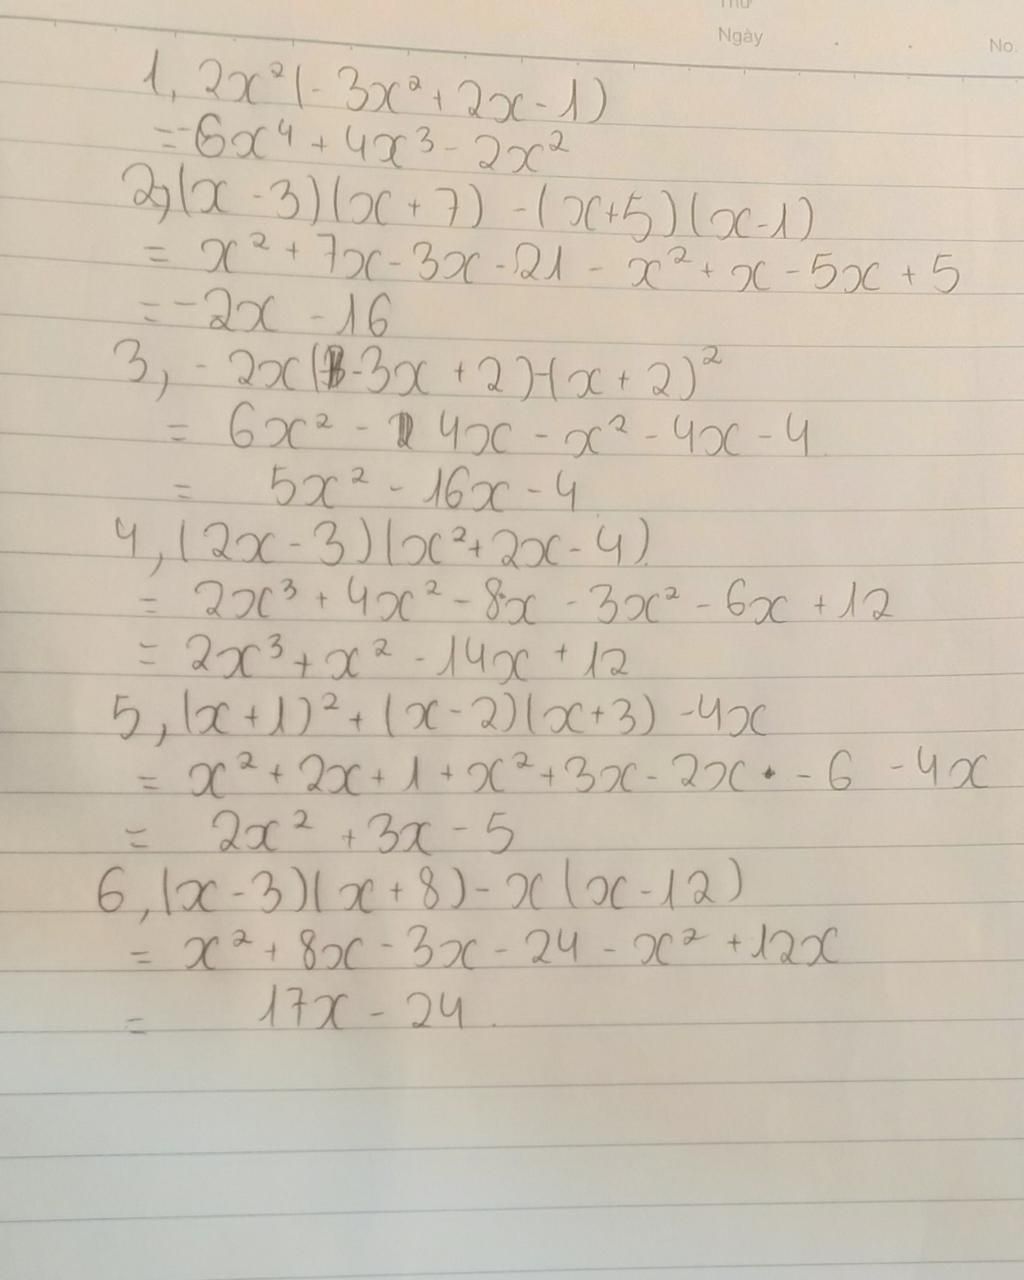 Thứ
Ngày . .
No.
1, 2x²(-3x²+2x-1)
=-6x⁴+4x³-2x²
2,(x-3)(x+7)-(x+5)(x-1)
= x²+7x-3x-21-x²+x-5x+5
=-2x-16
3, -2x(-3x+2)-(x+2)²
= 6x²-4x-x²-4x-4
= 5x²-16x-4
4, (2x-3)(x²+2x-4)
= 2x³+4x²-8x-3x²-6x+12
= 2x³+x²-14x+12
5, (x+1)²+(x-2)(x+3)-4x
= x²+2x+1+x²+3x-2x-6-4x
= 2x²+3x-5
6, (x-3)(x+8)-x(x-12)
= x²+8x-3x-24-x²+12x
= 17x-24.